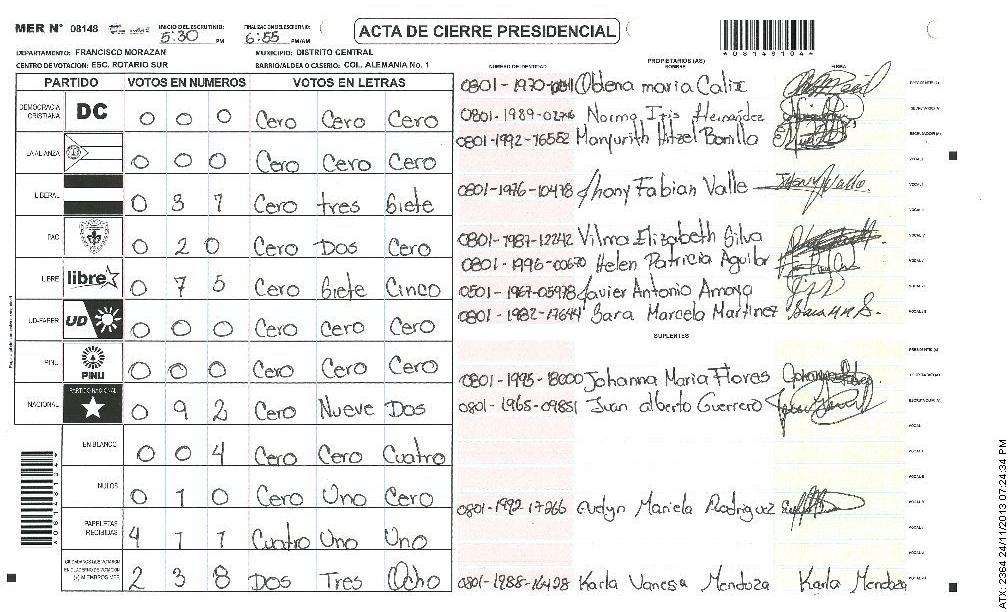 MER Nº 08148 INICIO DEL ESCRUTINIO: 5:30 PM FINALIZACION ESCRUTINIO: 6:55 PM/AM ACTA DE CIERRE PRESIDENCIAL
*08148104*
DEPARTAMENTO: FRANCISCO MORAZAN MUNICIPIO: DISTRITO CENTRAL
CENTRO DE VOTACION: ESC. ROTARIO SUR BARRIO/ALDEA O CASERIO: COL. ALEMANIA No. 1
PARTIDO VOTOS EN NUMEROS VOTOS EN LETRAS
DEMOCRACIA CRISTIANA DC 0 0 0 Cero Cero Cero
LA ALIANZA 0 0 0 Cero Cero Cero
LIBERAL 0 3 7 Cero tres Siete
PAC 0 2 0 Cero Dos Cero
LIBRE libre 0 7 5 Cero Siete Cinco
UD-FAPER UD 0 0 0 Cero Cero Cero
PINU PINU 0 0 0 Cero Cero Cero
NACIONAL PARTIDO NACIONAL 0 9 2 Cero Nueve Dos
EN BLANCO 0 0 4 Cero Cero Cuatro
NULOS 0 1 0 Cero Uno Cero
PAPELETAS RECIBIDAS 4 1 1 Cuatro Uno Uno
CIUDADANOS QUE VOTARON EN CUADERNO DE VOTACION (+) MIEMBROS MER 2 3 8 Dos Tres Ocho
PROPIETARIOS (AS)
NUMERO DE IDENTIDAD NOMBRE FIRMA
0801-1970- Obdena maria Calix PRESIDENTE (A)
0801-1989-02746 Norma Iris Hernandez SECRETARIO (A)
0801-1992-16552 Maryurith Hitzel Bonilla ESCRUTADOR (A)
VOCAL I
0801-1976-10478 Jhony Fabian Valle Jhony Valle VOCAL II
0801-1987-12242 Vilma Elizabeth Silva
0801-1996-00670 Helen Patricia Aguilar
0501-1967-05978 Javier Antonio Amaya
0801-1982-17644 Sara Marcela Martinez Sara M M S.
SUPLENTES
PRESIDENTE (A)
0801-1995-18000 Johanna Maria Flores
0801-1965-09851 Juan alberto Guerrero
0801-1992-17266 Evelyn Mariela Rodriguez
0801-1988-16428 Karla Vanesa Mendoza Karla Mendoza
ATX: 2364 24/11/2013 07:24:34 PM